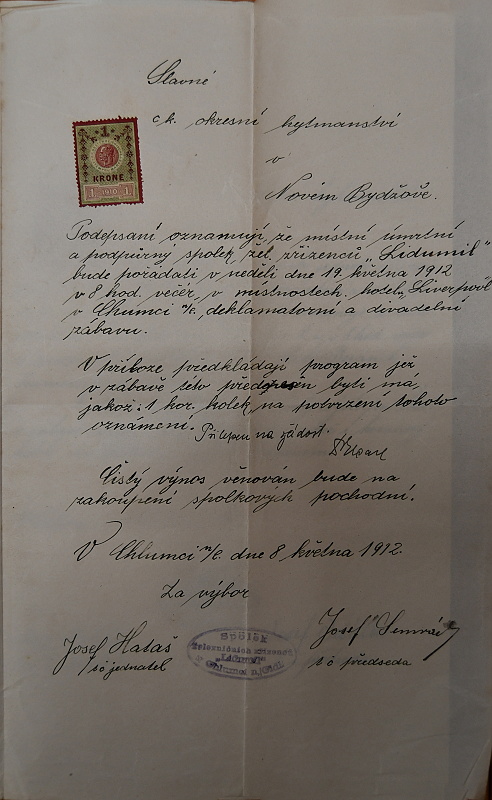 Slavné
c. k. okresní hejtmanství
v
Novém Bydžově.
KRONE
1 1910 1
Podepsaní oznamují že místní úmrtní
a podpůrný spolek žel. zřízenců „Lidumil"
bude pořádati v neděli dne 19. května 1912
v 8 hod. večer, v místnostech hotelu „Liverpool
v Chlumci n/C. deklamatorní a divadelní
zábavu.
V příloze předkládají program jež
v zábavě této předepsán býti má,
jakož i 1 kor. kolek na potvrzení tohoto
oznámení. Přilepen na žádost.
Čistý výnos věnován bude na
zakoupení spolkových pochodní.
V Chlumci n/C. dne 8 května 1912.
Za výbor
Josef Hataš
t č jednatel
Spolek
železničních zřízenců
„Lidumil"
v Chlumci n./Cidl.
Josef
t č předseda